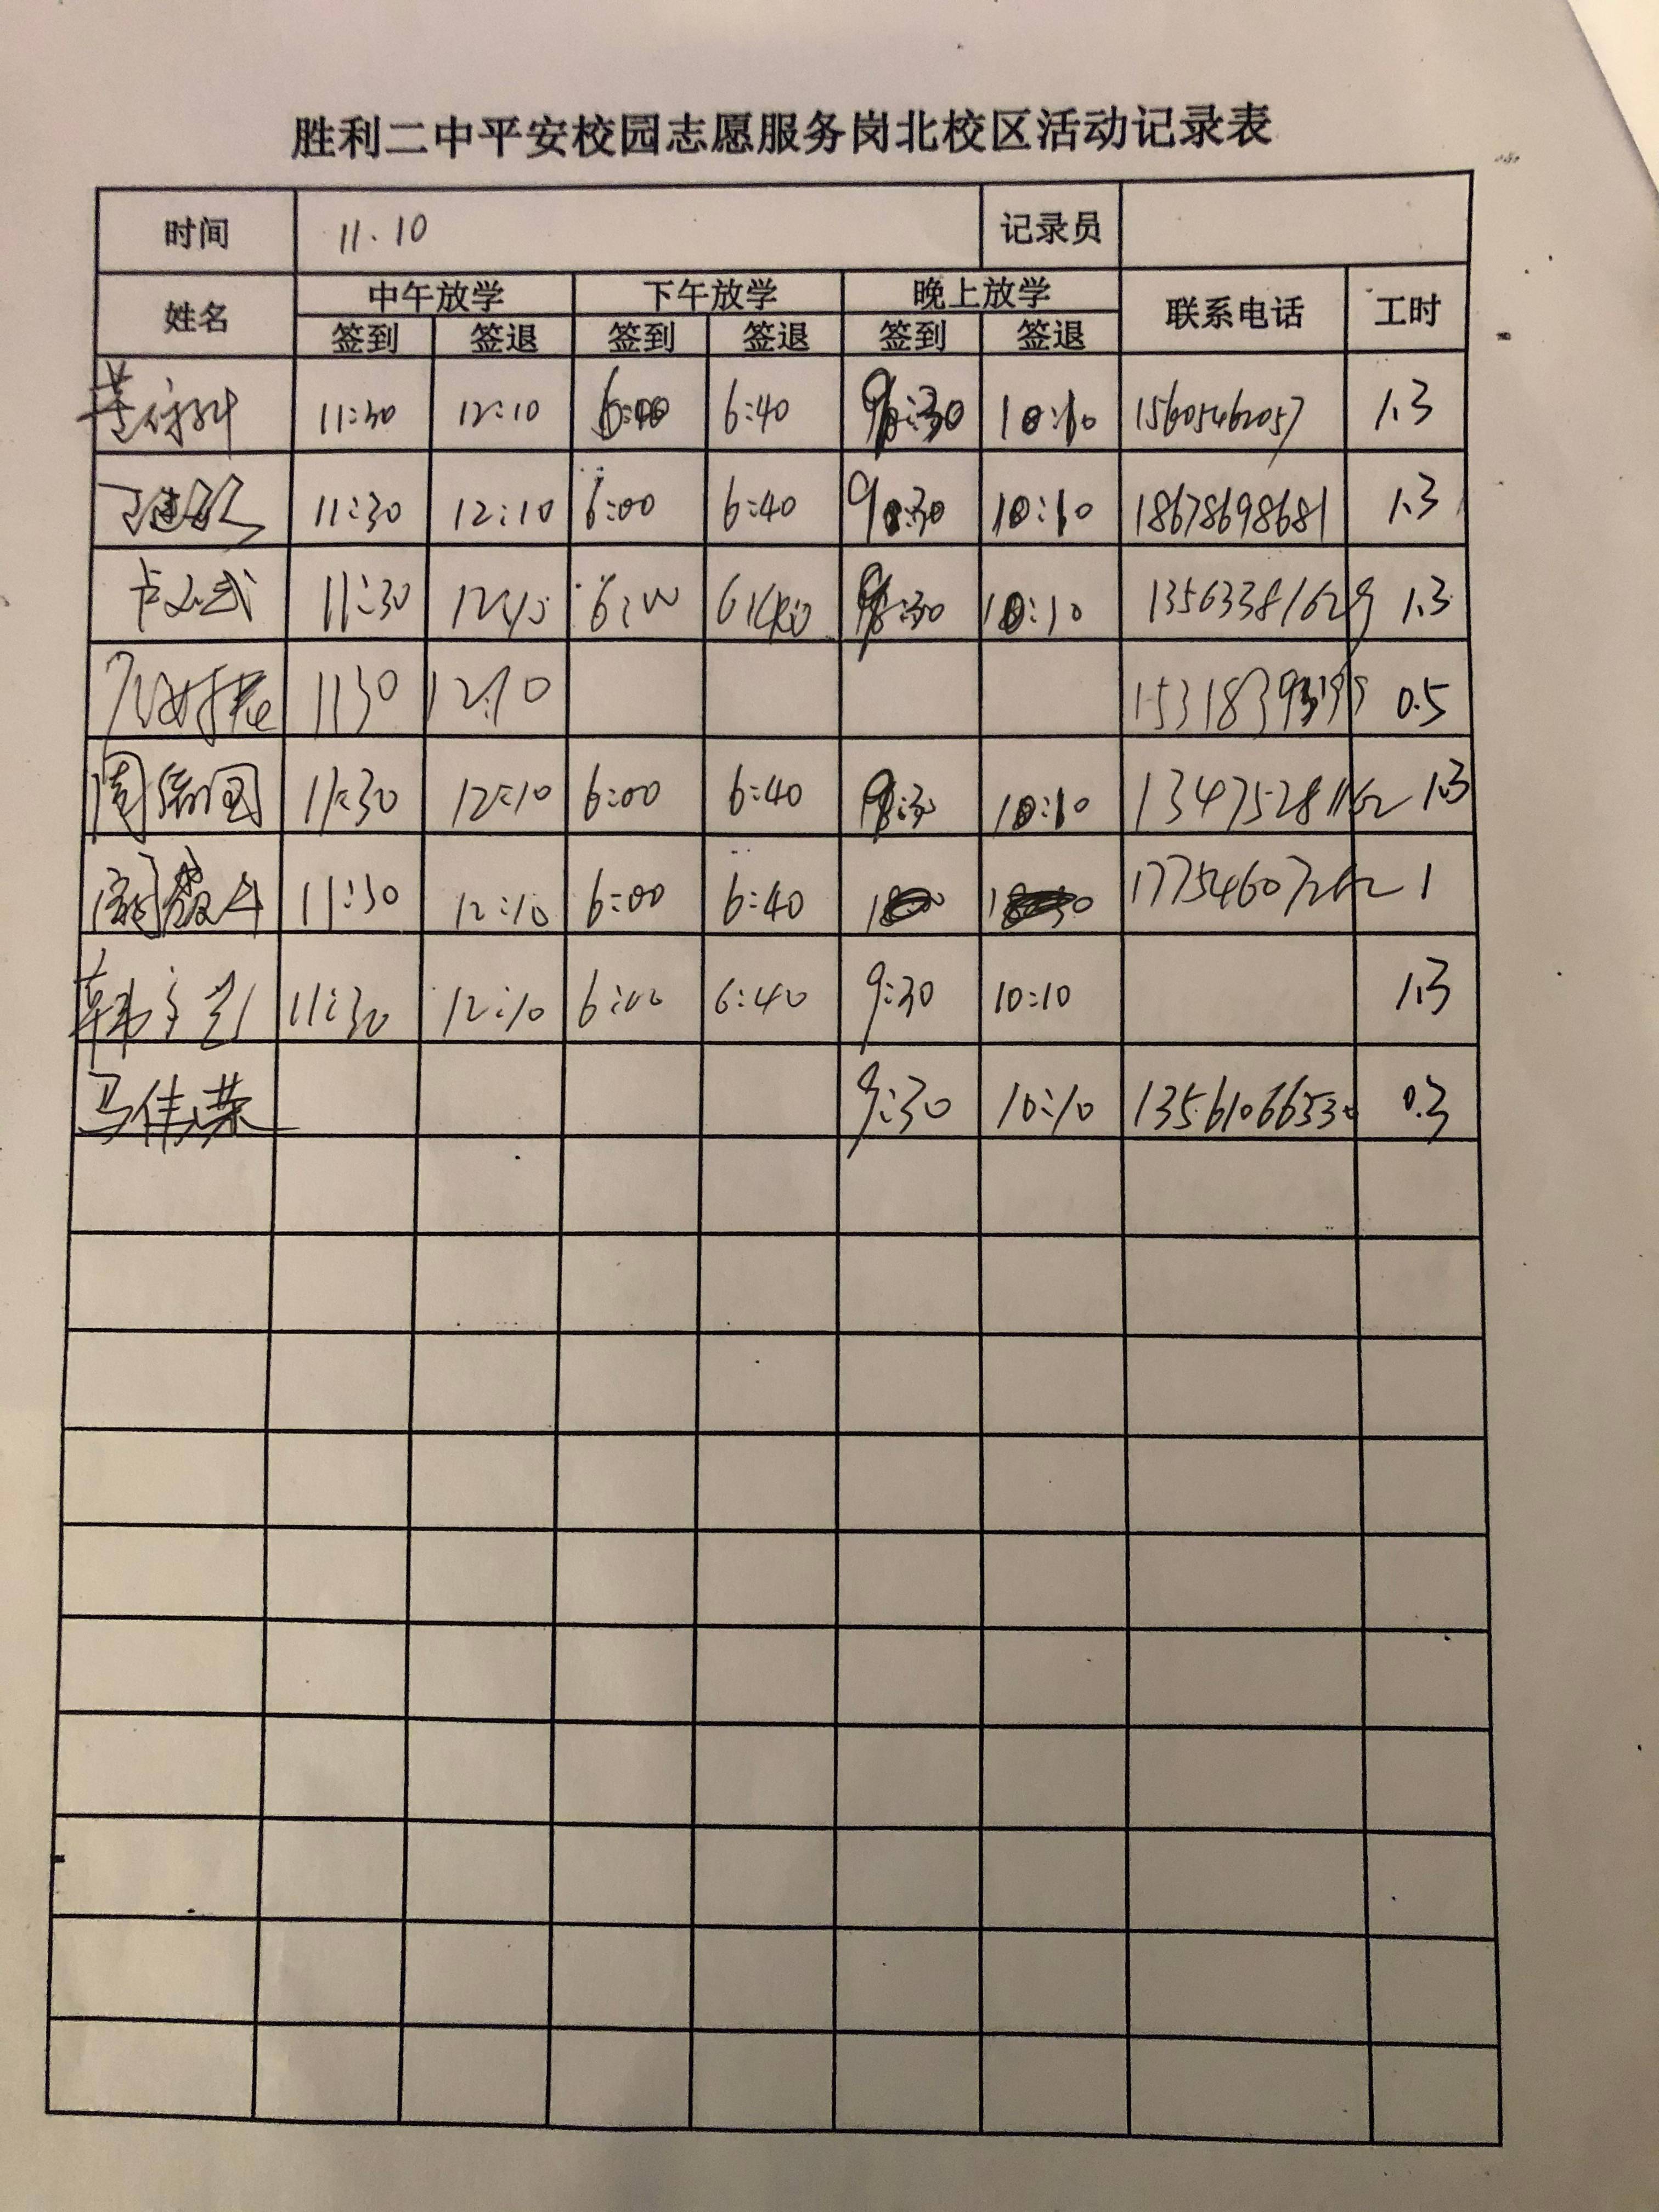 胜利二中平安校园志愿服务岗北校区活动记录表
时间 11.10 记录员
姓名 中午放学 下午放学 晚上放学 联系电话 工时
签到 签退 签到 签退 签到 签退
11:30 12:10 6:00 6:40 9:30 10:10 15605462057 1.3
11:30 12:10 6:00 6:40 9:30 10:10 18678698681 1.3
卢文武 11:30 12:10 6:00 6:40 9:30 10:10 13563381629 1.3
1130 12:10 0.5
11:30 12:10 6:00 6:40 9:30 10:10 1.3
11:30 12:10 6:00 6:40 1
11:30 12:10 6:00 6:40 9:30 10:10 1.3
马佳荣 9:30 10:10 13561066530 0.3